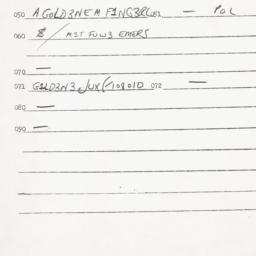 050 A GOLD3NEM F1NG3RL 051 — POL
060 $ / MIT FUW3 EMERS
070 —
071 G1LD3N3 JUX( 10801D 072 —
080 —
090 —